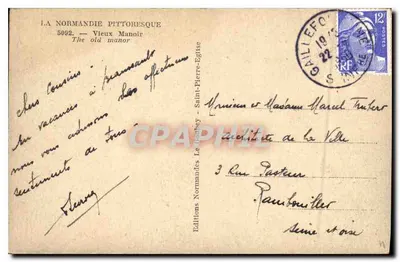 LA NORMANDIE PITTORESQUE
5092. — Vieux Manoir
The old manor
chers cousins
En vacances à
nous vous adressons les affectueux
sentiments de tous
Editions Normandes Le Saint-Pierre-Eglise
GAILLEFO
19
22
S
12F
RF
Monsieur et Madame Marcel Trubert
Architecte de la Ville
3 Rue Pasteur
Rambouillet
Seine et Oise